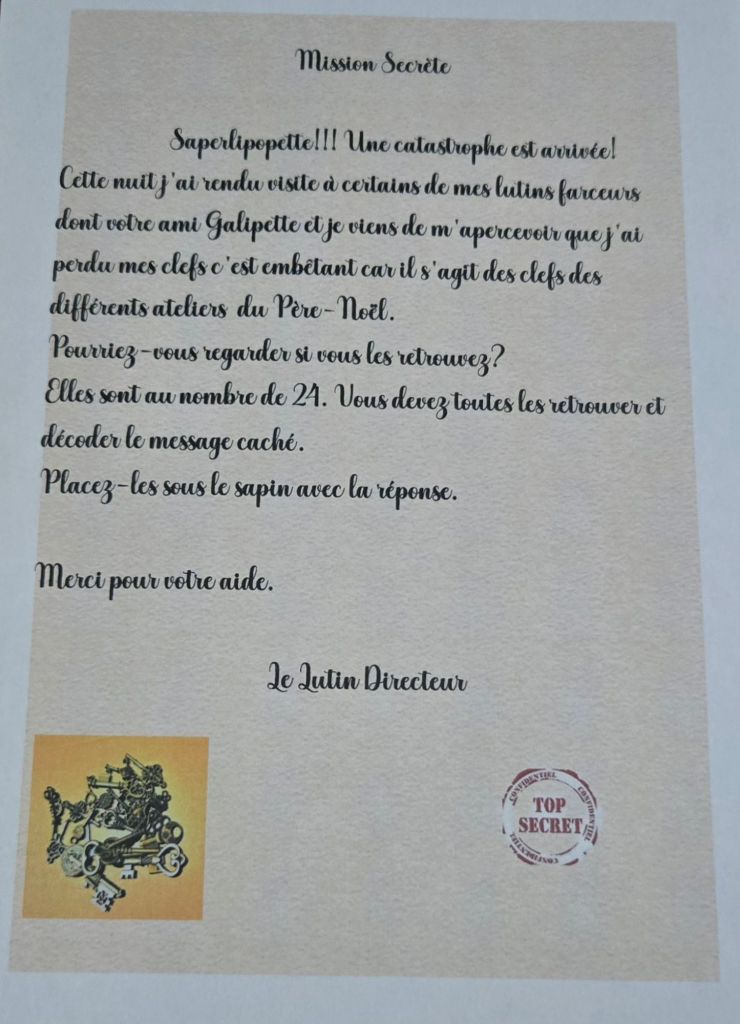 Mission Secrète
Saperlipopette!!! Une catastrophe est arrivée!
Cette nuit j'ai rendu visite à certains de mes lutins farceurs
dont votre ami Galipette et je viens de m'apercevoir que j'ai
perdu mes clefs c'est embêtant car il s'agit des clefs des
différents ateliers du Père-Noël.
Pourriez-vous regarder si vous les retrouvez?
Elles sont au nombre de 24. Vous devez toutes les retrouver et
décoder le message caché.
Placez-les sous le sapin avec la réponse.
Merci pour votre aide.
Le Lutin Directeur
CONFIDENTIEL
CONFIDENTIEL
TOP
SECRET
CONFIDENTIEL